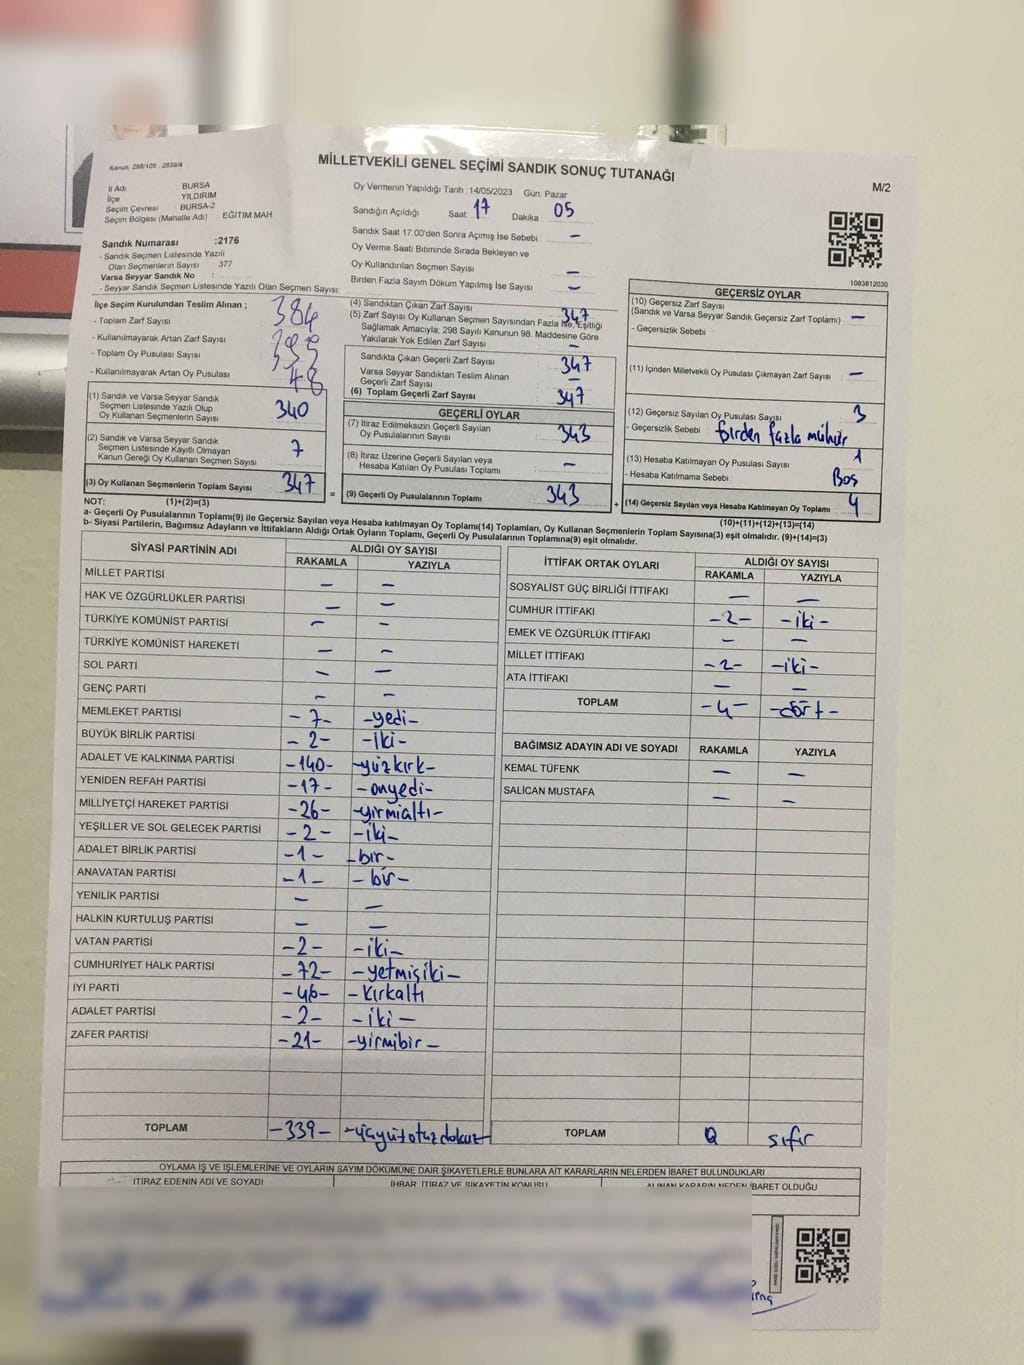 Kanun: 298/105 2839/4
MİLLETVEKİLİ GENEL SEÇİMİ SANDIK SONUÇ TUTANAĞI
M/2
İl Adı BURSA
İlçe YILDIRIM
Seçim Çevresi BURSA-2
Seçim Bölgesi (Mahalle Adı) EĞİTİM MAH
Sandık Numarası :2176
- Sandık Seçmen Listesinde Yazılı
Olan Seçmenlerin Sayısı : 377
Varsa Seyyar Sandık No :
- Seyyar Sandık Seçmen Listesinde Yazılı Olan Seçmen Sayısı:
Oy Vermenin Yapıldığı Tarih :14/05/2023 Gün: Pazar
Sandığın Açıldığı Saat 17 Dakika 05
Sandık Saat 17.00'den Sonra Açımış İse Sebebi : –
Oy Verme Saati Bitiminde Sırada Bekleyen ve
Oy Kullandırılan Seçmen Sayısı –
Birden Fazla Sayım Döküm Yapılmış İse Sayısı –
1083812030
İlçe Seçim Kurulundan Teslim Alınan ;
- Toplam Zarf Sayısı 384
- Kullanılmayarak Artan Zarf Sayısı
- Toplam Oy Pusulası Sayısı
- Kullanılmayarak Artan Oy Pusulası 48
(1) Sandık ve Varsa Seyyar Sandık
Seçmen Listesinde Yazılı Olup
Oy Kullanan Seçmenlerin Sayısı 340
(2) Sandık ve Varsa Seyyar Sandık
Seçmen Listesinde Kayıtlı Olmayan
Kanun Gereği Oy Kullanan Seçmen Sayısı 7
(3) Oy Kullanan Seçmenlerin Toplam Sayısı 347
(1)+(2)=(3)
(4) Sandıktan Çıkan Zarf Sayısı 347
(5) Zarf Sayısı Oy Kullanan Seçmen Sayısından Fazla İse, Eşitliği
Sağlamak Amacıyla; 298 Sayılı Kanunun 98. Maddesine Göre
Yakılarak Yok Edilen Zarf Sayısı –
Sandıkta Çıkan Geçerli Zarf Sayısı 347
Varsa Seyyar Sandıktan Teslim Alınan
Geçerli Zarf Sayısı –
(6) Toplam Geçerli Zarf Sayısı 347
GEÇERLİ OYLAR
(7) İtiraz Edilmeksizin Geçerli Sayılan
Oy Pusulalarının Sayısı 343
(8) İtiraz Üzerine Geçerli Sayılan veya
Hesaba Katılan Oy Pusulası Toplamı –
= (9) Geçerli Oy Pusulalarının Toplamı 343
GEÇERSİZ OYLAR
(10) Geçersiz Zarf Sayısı
(Sandık ve Varsa Seyyar Sandık Geçersiz Zarf Toplamı) : –
- Geçersizlik Sebebi :
(11) İçinden Milletvekili Oy Pusulası Çıkmayan Zarf Sayısı : –
(12) Geçersiz Sayılan Oy Pusulası Sayısı 3
- Geçersizlik Sebebi : birden fazla mühür
(13) Hesaba Katılmayan Oy Pusulası Sayısı 1
- Hesaba Katılmama Sebebi : Boş
+ (14) Geçersiz Sayılan veya Hesaba Katılmayan Oy Toplamı 4
(10)+(11)+(12)+(13)=(14)
NOT:
a- Geçerli Oy Pusulalarının Toplamı(9) ile Geçersiz Sayılan veya Hesaba katılmayan Oy Toplamı(14) Toplamları, Oy Kullanan Seçmenlerin Toplam Sayısına(3) eşit olmalıdır. (9)+(14)=(3)
b- Siyasi Partilerin, Bağımsız Adayların ve İttifakların Aldığı Ortak Oyların Toplamı, Geçerli Oy Pusulalarının Toplamına(9) eşit olmalıdır.
SİYASİ PARTİNİN ADI ALDIĞI OY SAYISI
RAKAMLA YAZIYLA
MİLLET PARTİSİ – –
HAK VE ÖZGÜRLÜKLER PARTİSİ – –
TÜRKİYE KOMÜNİST PARTİSİ – –
TÜRKİYE KOMÜNİST HAREKETİ – –
SOL PARTİ – –
GENÇ PARTİ – –
MEMLEKET PARTİSİ -7- -yedi-
BÜYÜK BİRLİK PARTİSİ -2- -iki-
ADALET VE KALKINMA PARTİSİ -140- -yüzkırk-
YENİDEN REFAH PARTİSİ -17- -onyedi-
MİLLİYETÇİ HAREKET PARTİSİ -26- -yirmialtı-
YEŞİLLER VE SOL GELECEK PARTİSİ -2- -iki-
ADALET BİRLİK PARTİSİ -1- -bir-
ANAVATAN PARTİSİ -1- -bir-
YENİLİK PARTİSİ – –
HALKIN KURTULUŞ PARTİSİ – –
VATAN PARTİSİ -2- -iki-
CUMHURİYET HALK PARTİSİ -72- -yetmişiki-
İYİ PARTİ -46- -kırkaltı
ADALET PARTİSİ -2- -iki-
ZAFER PARTİSİ -21- -yirmibir-
TOPLAM -339- -üçyüzotuzdokuz-
İTTİFAK ORTAK OYLARI ALDIĞI OY SAYISI
RAKAMLA YAZIYLA
SOSYALİST GÜÇ BİRLİĞİ İTTİFAKI – –
CUMHUR İTTİFAKI -2- -iki-
EMEK VE ÖZGÜRLÜK İTTİFAKI – –
MİLLET İTTİFAKI -2- -iki-
ATA İTTİFAKI – –
TOPLAM -4- -dört-
BAĞIMSIZ ADAYIN ADI VE SOYADI RAKAMLA YAZIYLA
KEMAL TÜFENK – –
SALİCAN MUSTAFA – –
TOPLAM 0 sıfır
OYLAMA İŞ VE İŞLEMLERİNE VE OYLARIN SAYIM DÖKÜMÜNE DAİR ŞİKAYETLERLE BUNLARA AİT KARARLARIN NELERDEN İBARET BULUNDUKLARI
İTİRAZ EDENİN ADI VE SOYADI İHBAR, İTİRAZ VE ŞİKAYETİN KONUSU ALINAN KARARIN NEDEN İBARET OLDUĞU